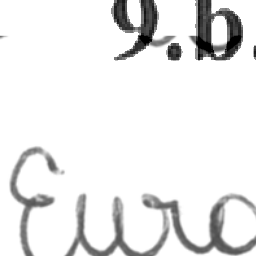 9.b.
Euro